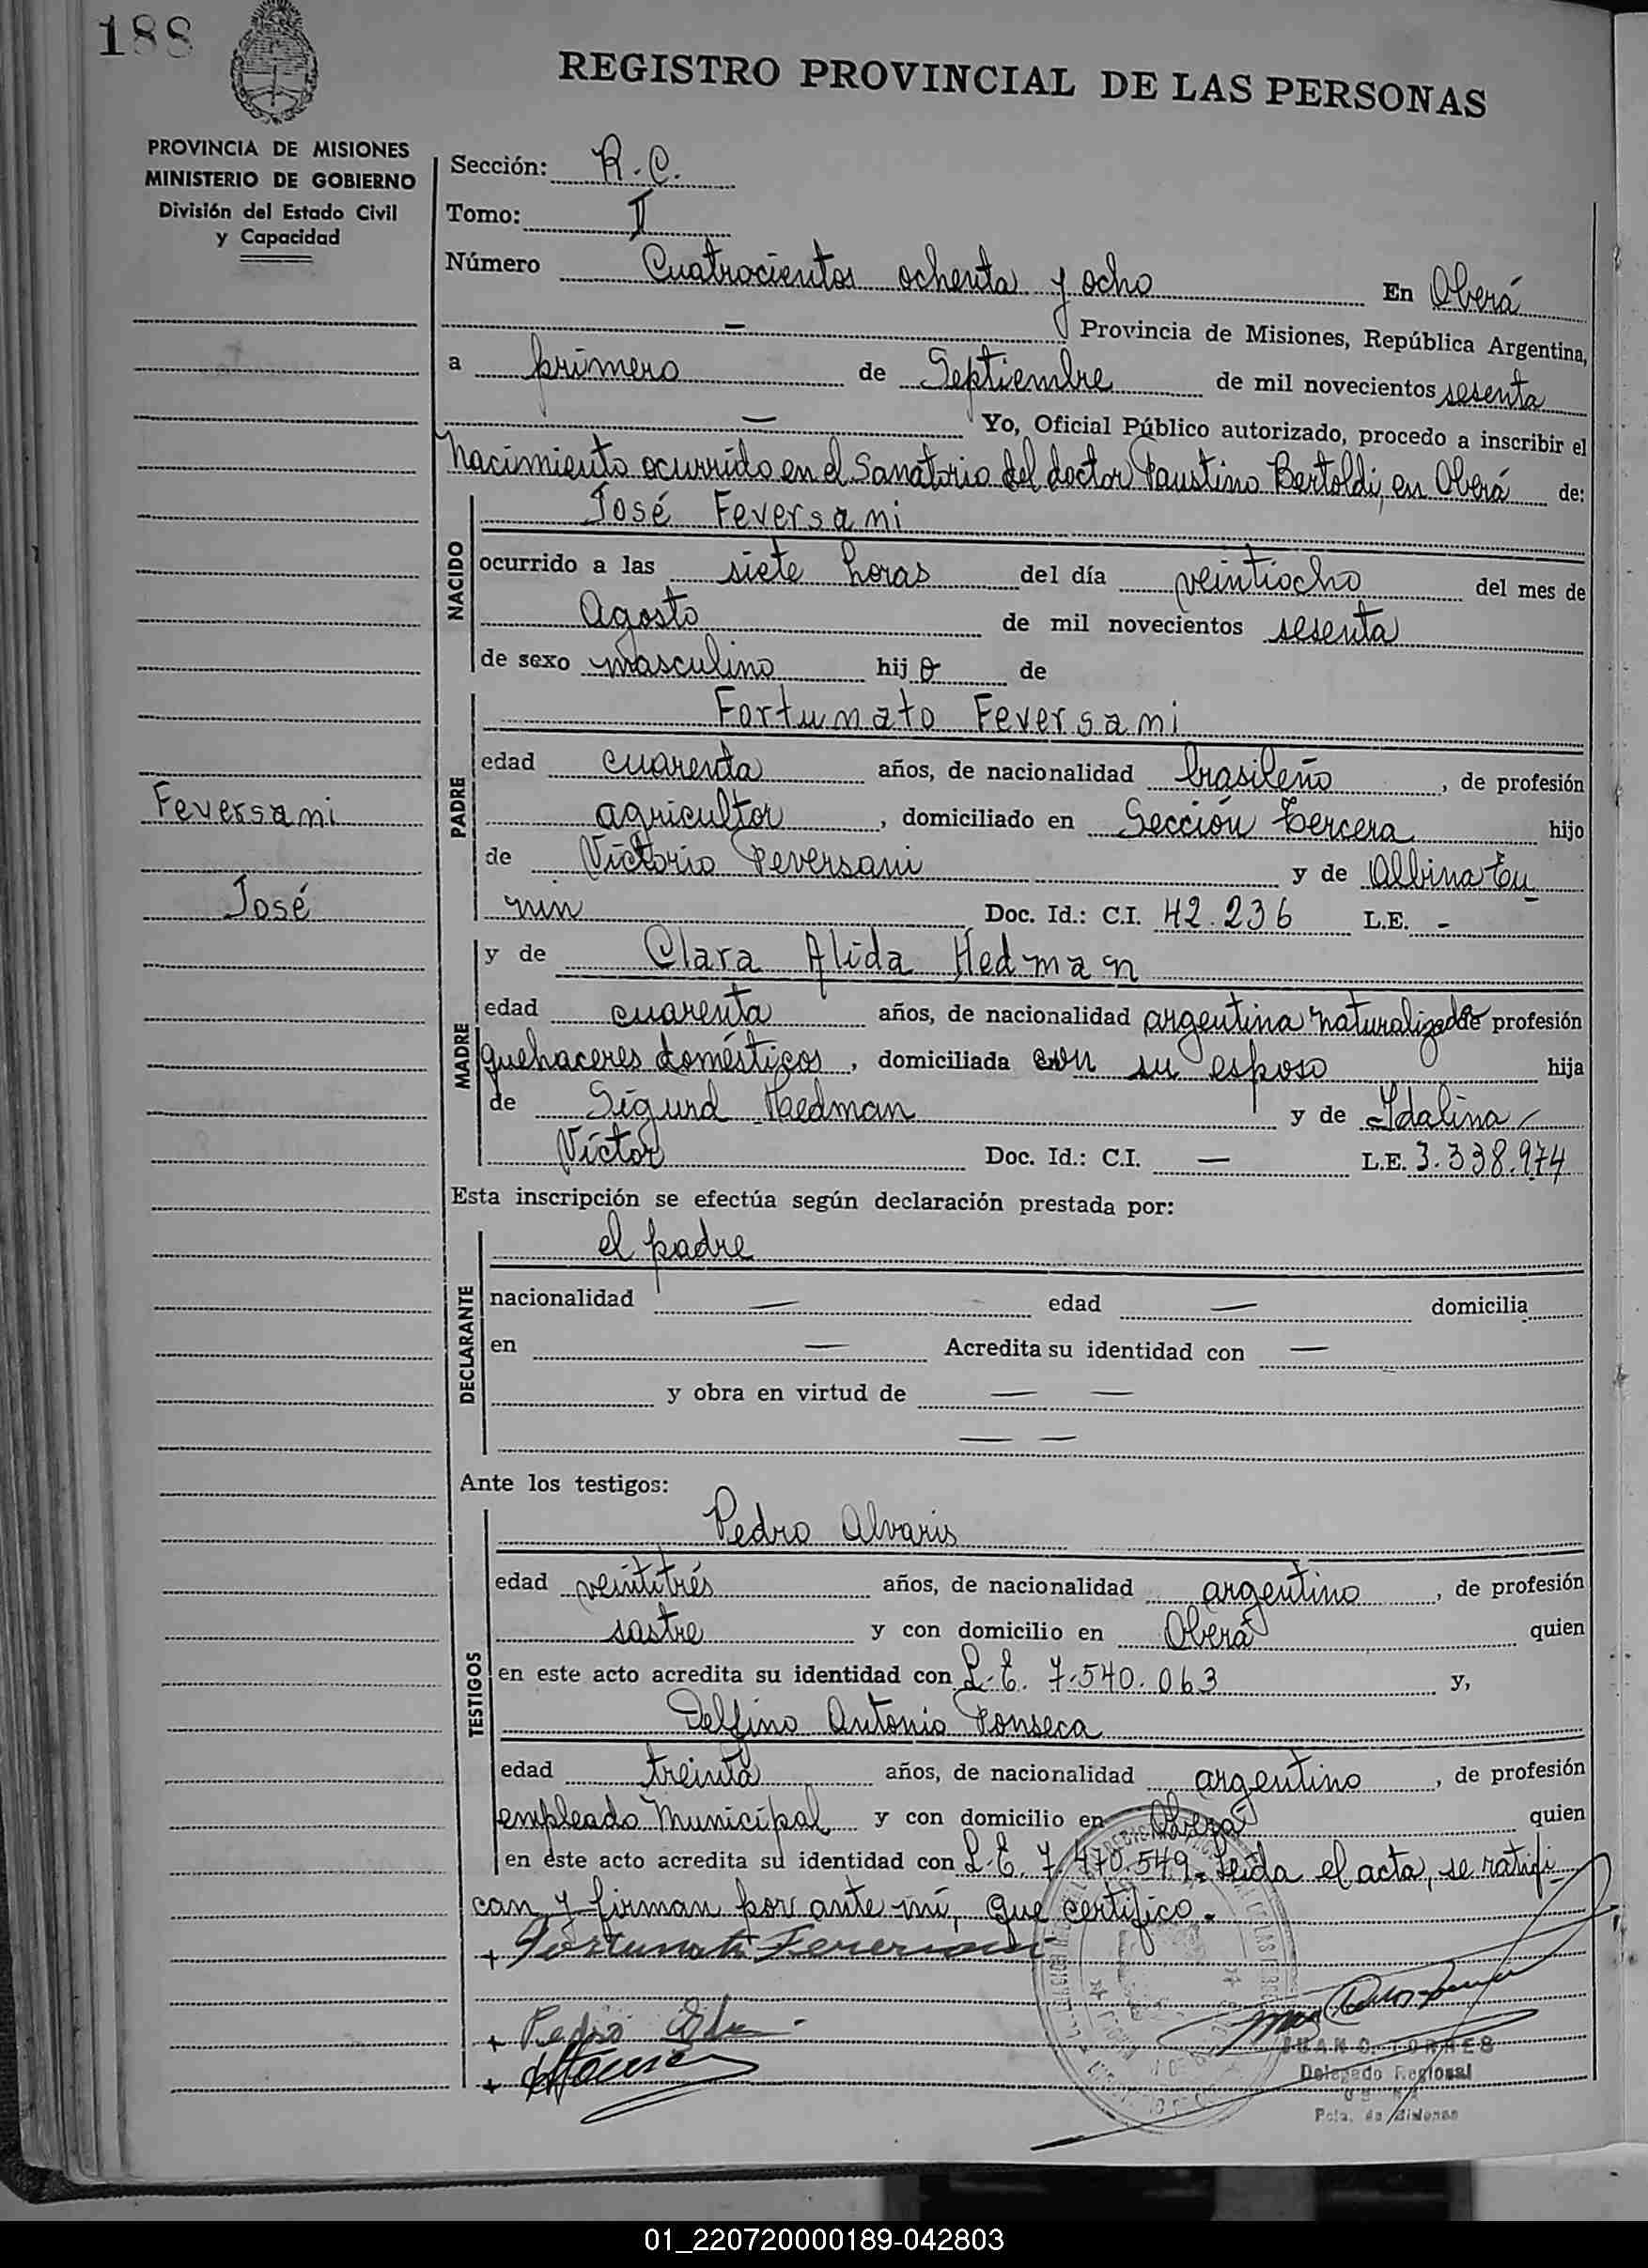 188
REGISTRO PROVINCIAL DE LAS PERSONAS
PROVINCIA DE MISIONES
MINISTERIO DE GOBIERNO
División del Estado Civil
y Capacidad
Sección: R.C.
Tomo: II
Número Cuatrocientos ochenta y ocho En Oberá
— Provincia de Misiones, República Argentina,
a primero de Septiembre de mil novecientos sesenta
— Yo, Oficial Público autorizado, procedo a inscribir el
nacimiento ocurrido en el Sanatorio del doctor Faustino Bertoldi, en Oberá de:
NACIDO
José Feversani
ocurrido a las siete horas del día veintiocho del mes de
Agosto de mil novecientos sesenta
de sexo masculino hijo de
PADRE
Fortunato Feversani
edad cuarenta años, de nacionalidad brasileño, de profesión
Feversani
agricultor, domiciliado en Sección tercera hijo
de Victorio Feversani y de Albina Tu
José
nin Doc. Id.: C.I. 42.236 L.E. -
MADRE
y de Clara Alida Hedman
edad cuarenta años, de nacionalidad argentina naturalizada de profesión
quehaceres domésticos, domiciliada con su esposo hija
de Sigurd Hedman y de Idalina
Victor Doc. Id.: C.I. — L.E. 3.338.974
Esta inscripción se efectúa según declaración prestada por:
DECLARANTE
el padre
nacionalidad — edad — domicilia
en — Acredita su identidad con —
y obra en virtud de — —
— —
Ante los testigos:
TESTIGOS
Pedro Alvaris
edad veintitrés años, de nacionalidad argentino, de profesión
sastre y con domicilio en Oberá quien
en este acto acredita su identidad con L.E. 7.540.063 y,
Delfino Antonio Fonseca
edad treinta años, de nacionalidad argentino, de profesión
empleado Municipal y con domicilio en Oberá quien
en este acto acredita su identidad con L.E. 7.470.549. Leida el acta, se ratifi
can y firman por ante mí, que certifico.
+ Fortunato Feversani
+ Pedro
+
JUAN C. TORRES
Delegado Regional
OBERA
Pcia. de Misiones
01_220720000189-042803